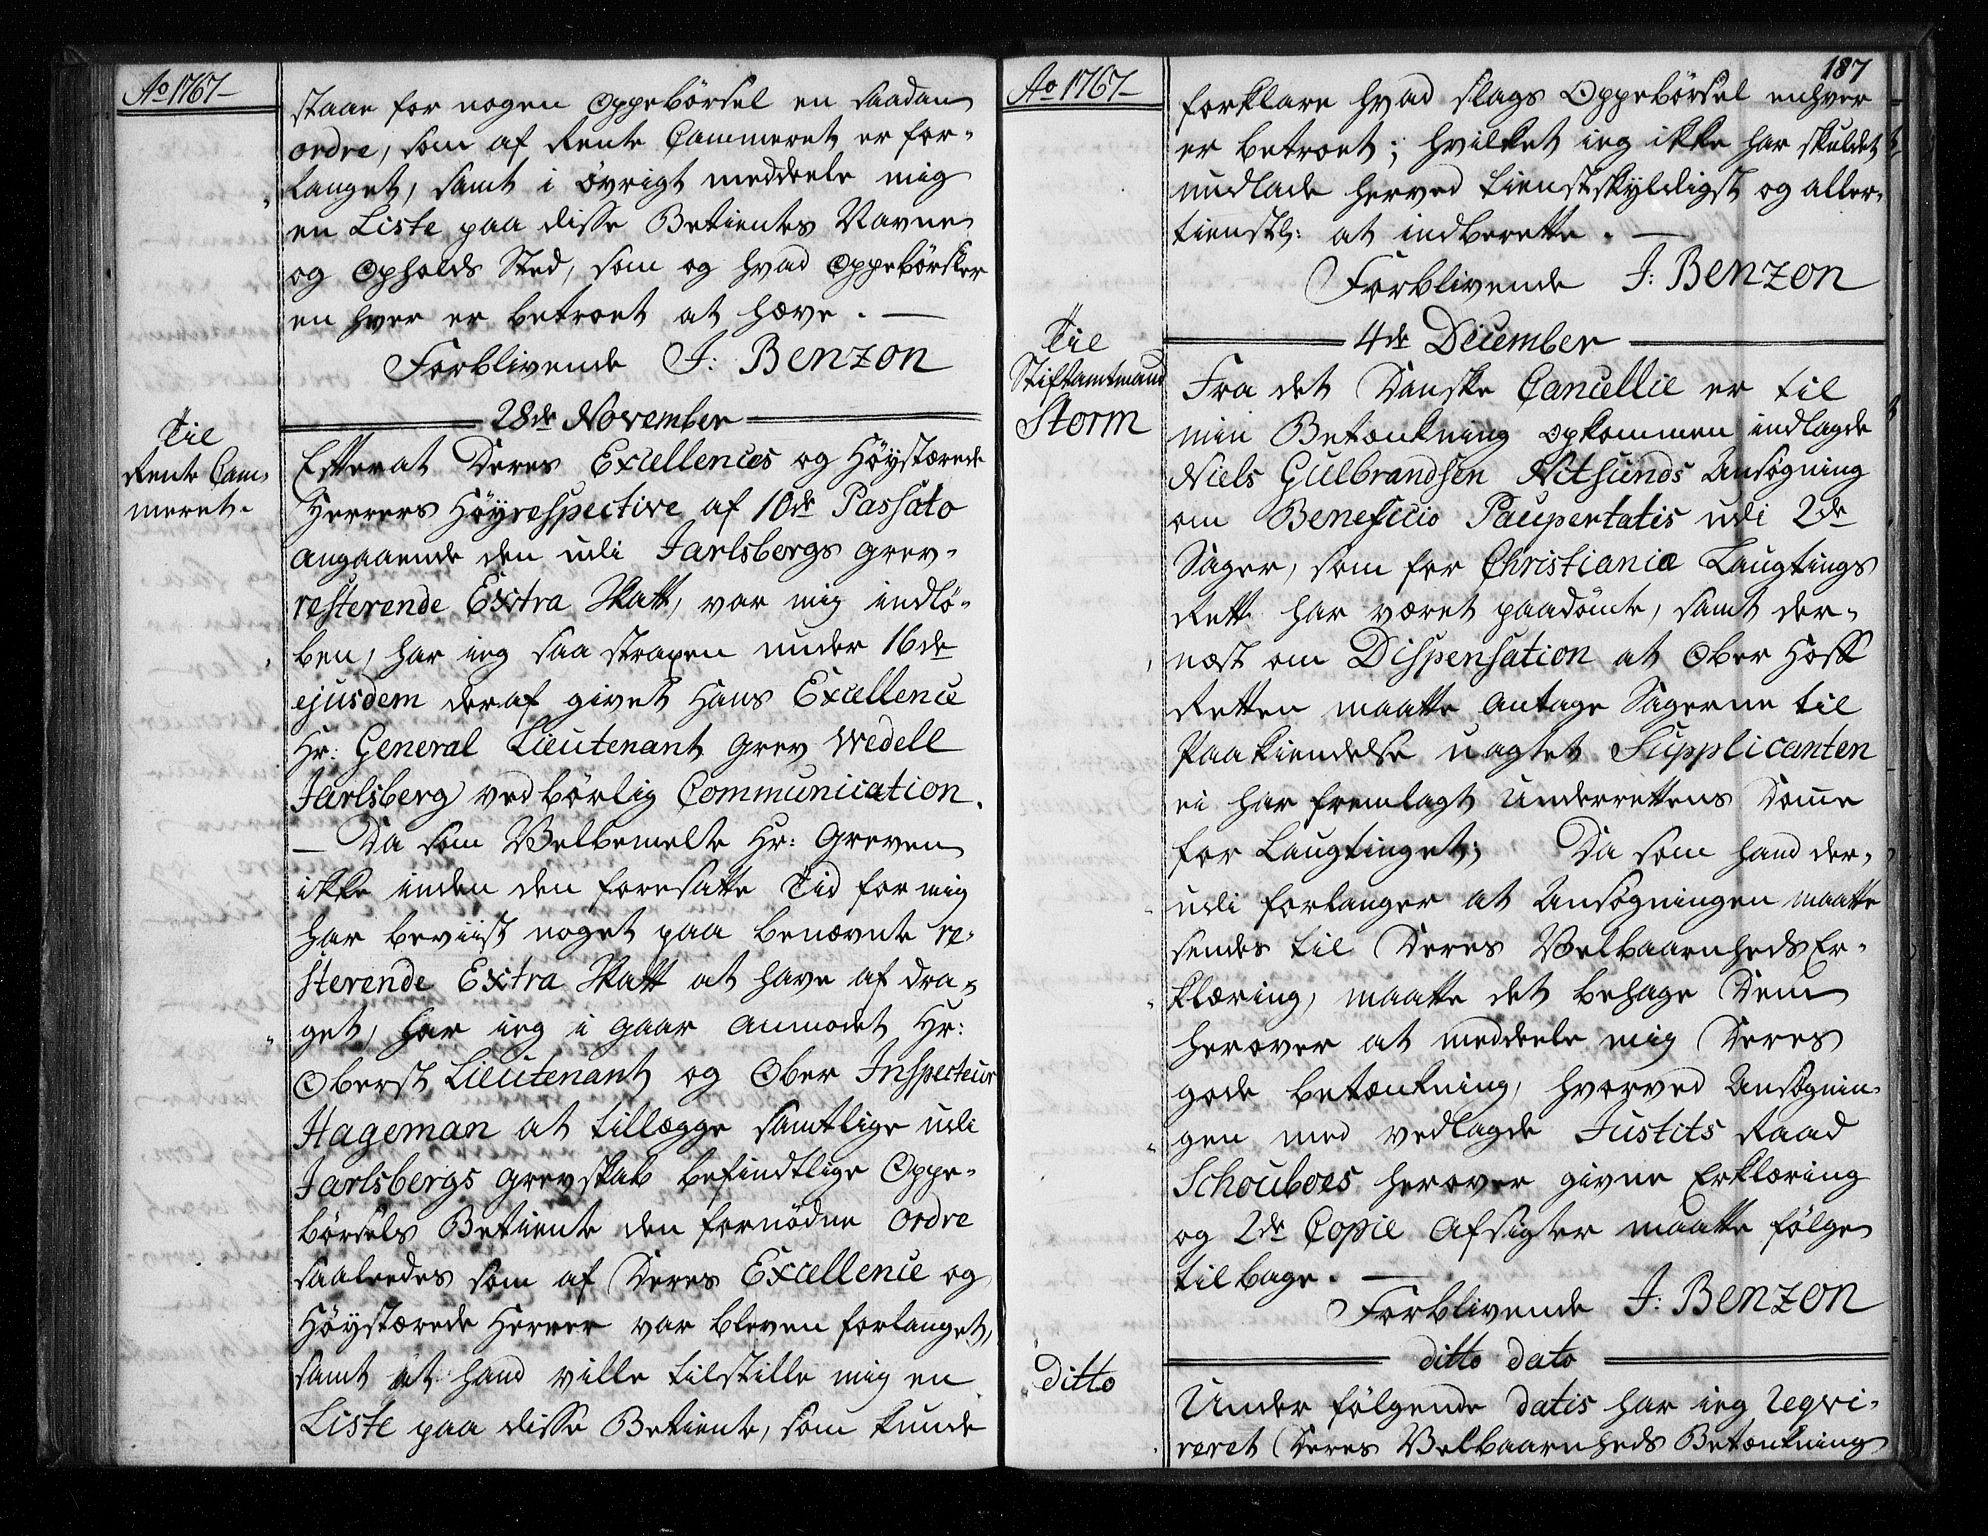 Ao 1767
staae for nogen Oppebörsel en saadan
ordre, som af Rente Cammeret er for-
langet, samt i øvrigt meddeele mig
en Liste paa disse Betientes Navne
og Opholds Sted, som og hvad Oppebörsler
en hver er betroet at hæve. —
Forblivende J: Benzon
28de November
Til
Rente Cam-
meret.
Efterat Deres Excellences og Höystærede
Herrers Höyrespective af 10de Passato
angaaende den udi Jarlsbergs Grev-
resterende Extra Skatt, var mig indlö-
ben, har ieg saa straxen under 16de
ejusdem deraf givet Hans Excellence
Hr: General Lieutenant Grev Wedell
Jarlsberg vedbörlig Communication.
— Da som Velbemelte Hr: Greven
ikke inden den foresatte Tid for mig
har beviist noget paa benævnte re-
sterende Extra Skatt at have afdra-
get, har ieg i gaar anmodet Hr:
Oberst Lieutenant og Ober Inspecteur
Hageman at tillægge samtlige udi
Jarlsbergs Grevskab befindtlige Oppe-
börsels Betiente den fornödne ordre
saaledes som af Deres Excellence og
Höystærede Herrer var bleven forlanget,
samt at hand ville tilstille mig en
Liste paa disse Betiente, som kunde
Ao 1767
187
forklare hvad slags Oppebörsel enhver
er betroet; hvilket ieg ikke har skuldet
undlade herved tienstskyldigst og aller-
tienstl: at indberette. —
Forblivende J: Benzon
4de December
Til
Stiftamtmand
Storm
Fra det Danske Cancellie er til
min Betænkning opkommen indlagde
Niels Gulbrandsen Nitsunds Ansøgning
om Beneficio Paupertatis udi 2de
Sager, som for Christiania Laugtings
Rett har været paadömte, samt der-
næst om Dispensation at Ober Hoff
Retten maatte antage Sagerne til
Paakiendelse uagtet Supplicanten
ei har fremlagt Underrettens Domme
for Laugtinget; Da som hand der-
udi forlanger at Ansøgningen maatte
sendes til Deres Velbaarnheds Er-
klæring, maatte det behage Dem
herover at meddeele mig Deres
gode betænkning, hvorved Ansøgnin-
gen med vedlagde Justits Raad
Schouboes herover givne Erklæring
og 2de Copie Afsigter maatte fölge
tilbage. —
Forblivende J: Benzon
ditto dato
ditto
Under fölgende datis har ieg reqvi-
reret Deres Velbaarnheds Betænkning